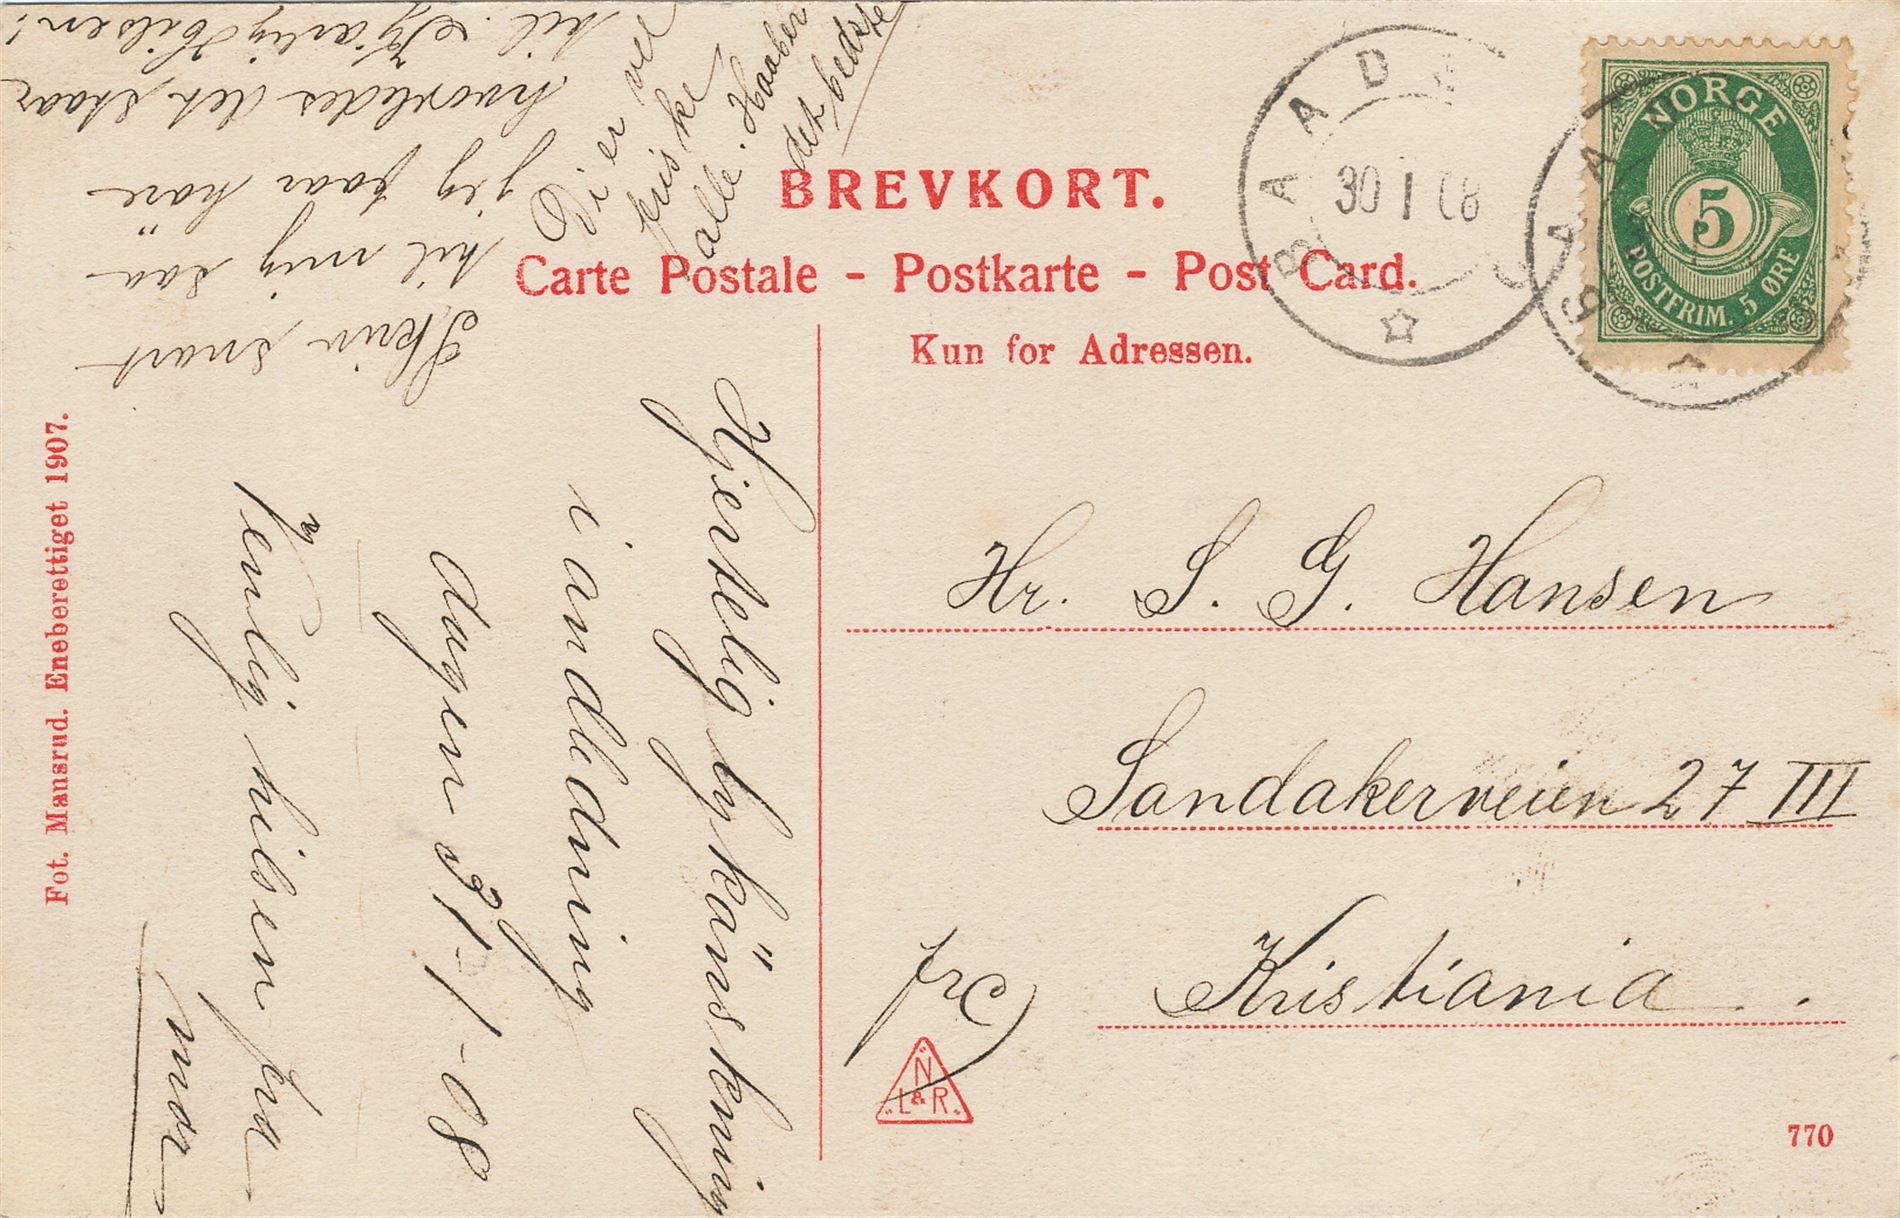 BREVKORT.
Carte Postale - Postkarte - Post Card.
Kun for Adressen.
NORGE
5
POSTFRIM. 5 ØRE
30 I 08
Hr. S. G. Hansen
Sandakerveien 27 III
Kristiania.
N
L & R
770
Fot. Mansrud. Eneberettiget 1907.
Hjertelig lykönskning
i andledning
dagen 31-1-08
venlig hilsen fra
mor
Skriv snart
til mig saa
jeg faar höre
hvorledes det staar
til. Kjærlig Hilsen!
Vi er vel
friske
alle. Haaber
det bedste